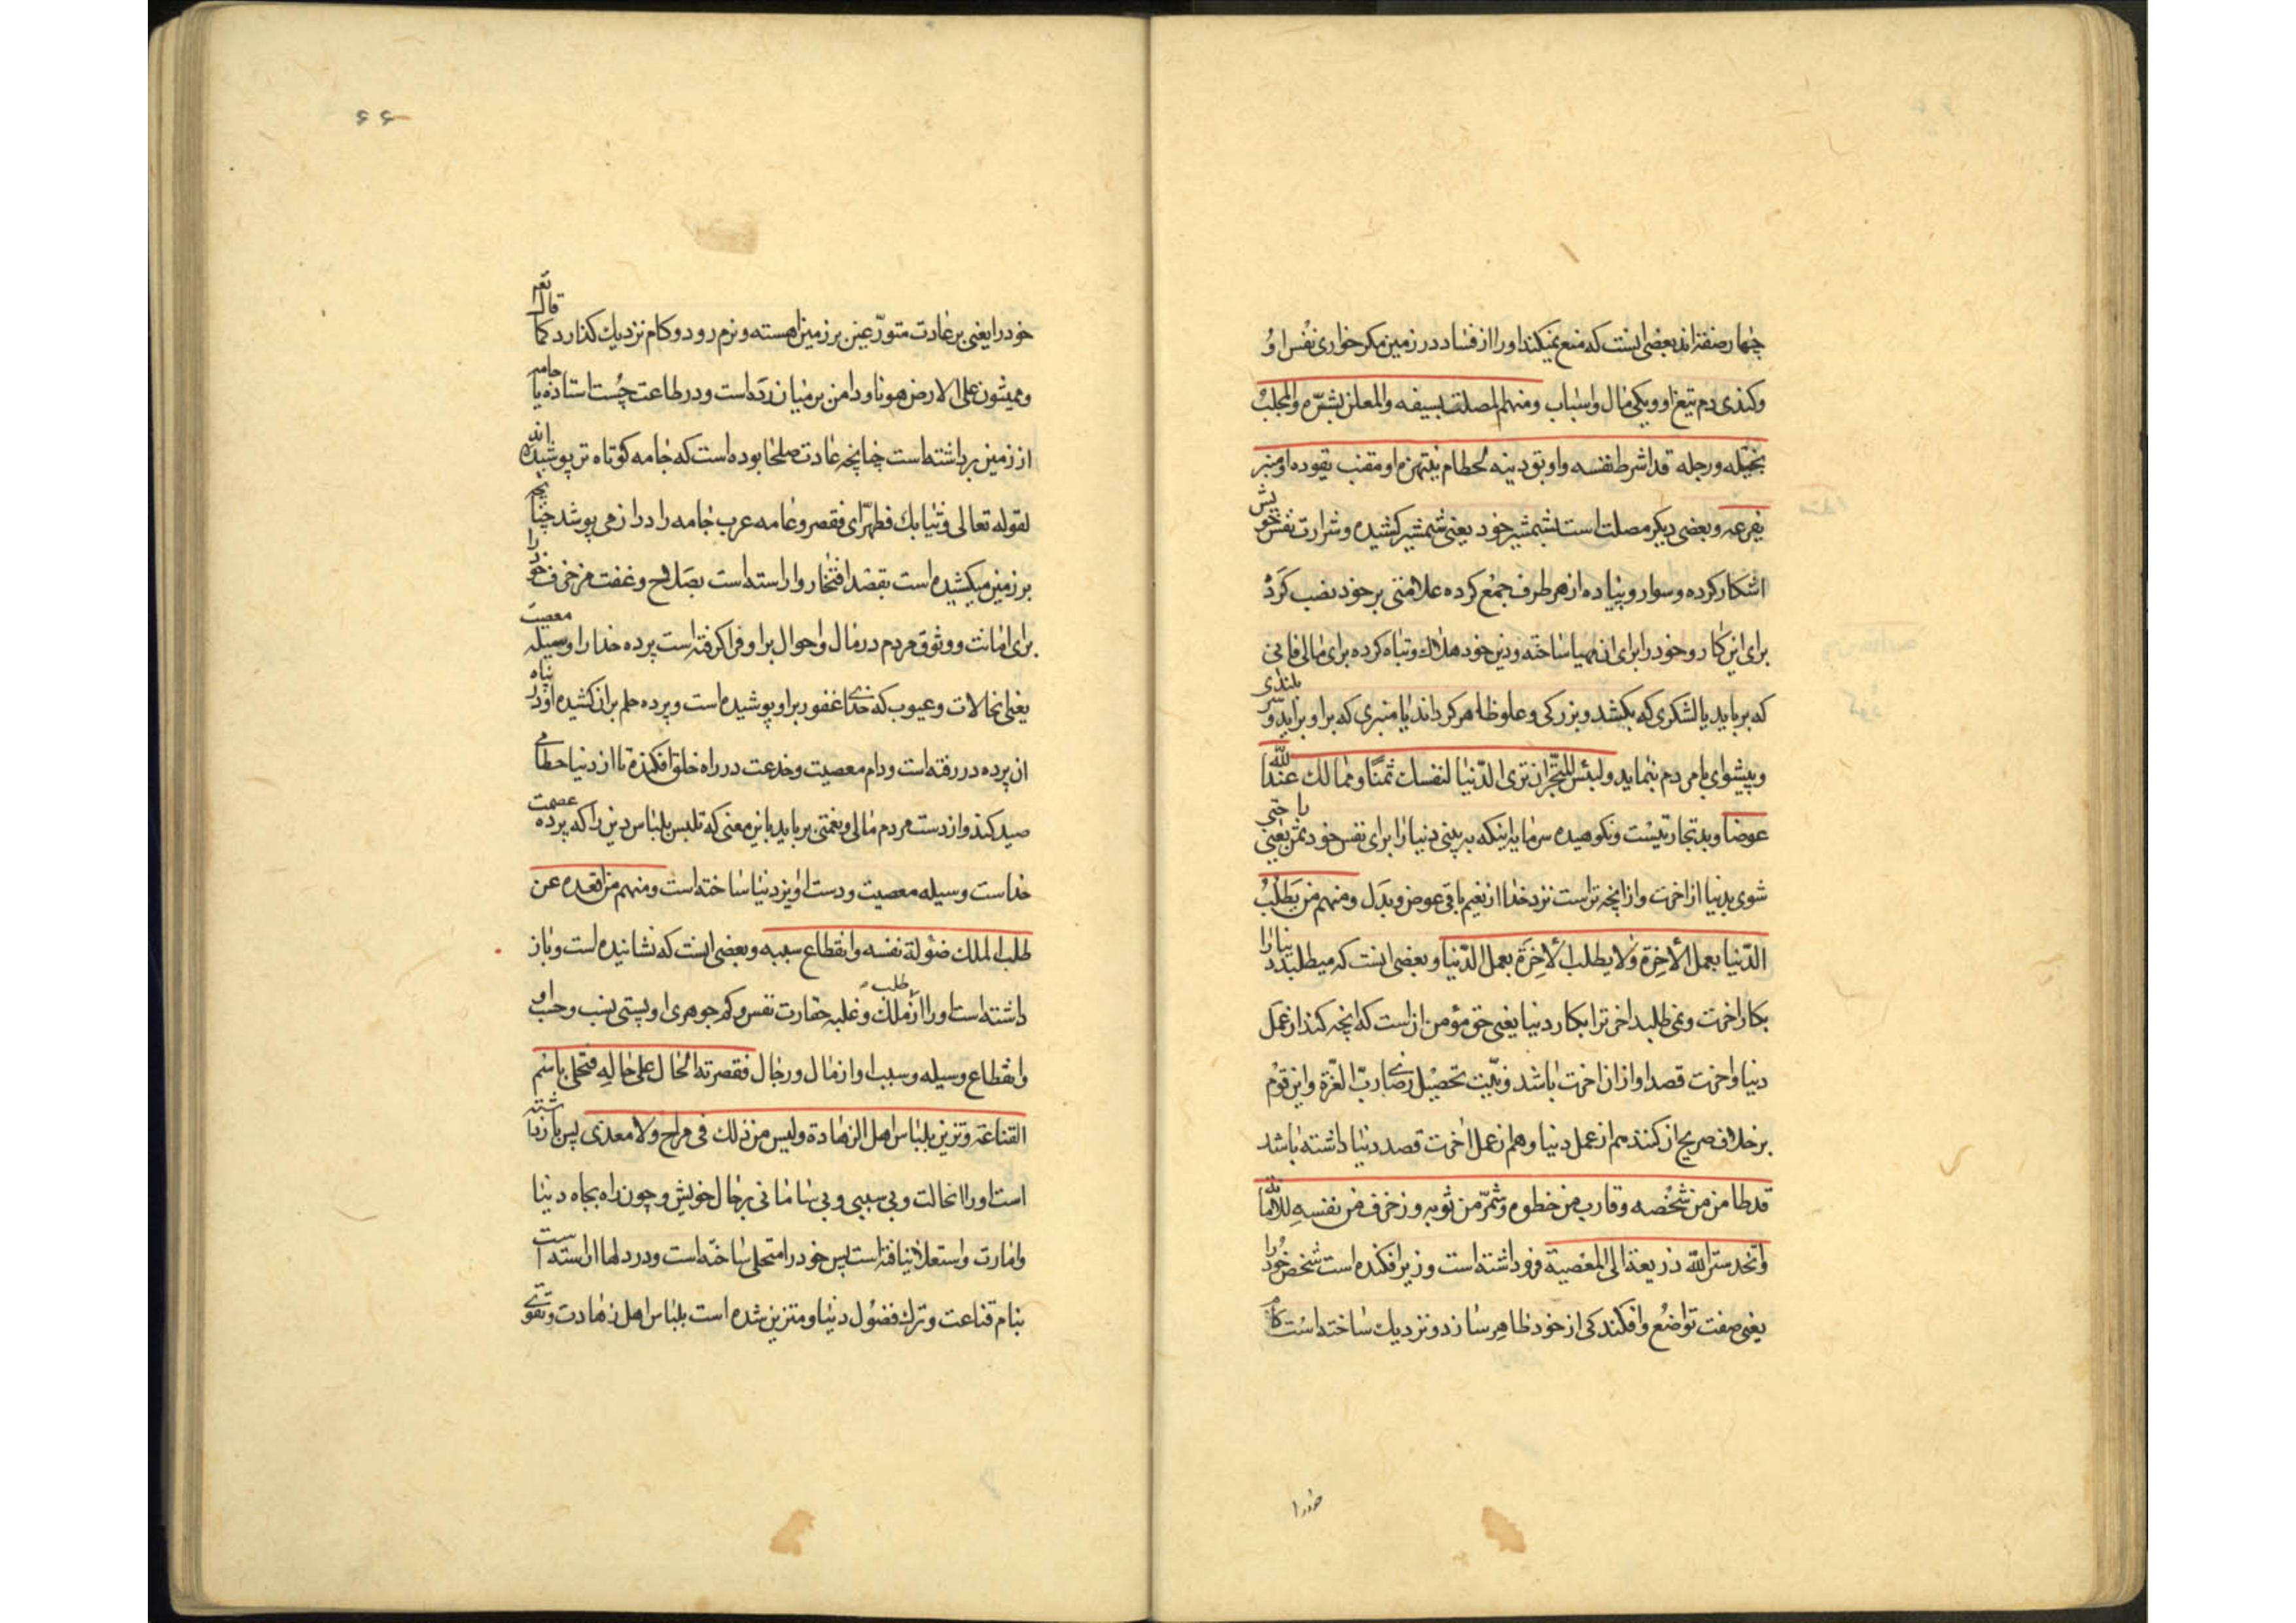 چهار صنف‌اند بعضی انست که منع نمیکند او را از فساد در زمین مکر خواری نفس او
وکندی دم تیغ او و یکی مال واسباب ومنهم المصلت بسیفه والمعلن بشره والمجلب
بخیله ورجله قد اشرط نفسه واوبق دینه لحطام ینتهزه او مقنب یقوده او منبر
یفرعه وبعضی دیکر مصلت است بشمشیر خود یعنی شمشیر کشیده وشرارت نفس خویش
اشکار کرده وسوار وپیاده از هر طرف جمع کرده علامتی بر خود نصب کرد
برای این کار وخود را برای ان مهیا ساخته ودین خود هلاك وتباه کرده برای مالی فانی
که برباید یا لشکری که بکشد وبزرکی وعلو ظاهر کرداند یا منبری که براو براید و بلندی
وپیشوای بامردم بنماید ولبئس المتجر ان تری الدنیا لنفسك ثمنا ومما لك عند الله
عوضا وبد تجارتیست ونکوهیده سرمایه اینکه به بینی دنیا را برای نفس خود ثمن یعنی را حتی
شوی بدنیا از اخرت وازانچه تراست نزد خدا از نعیم باقی عوض وبدل ومنهم من یطلب
الدنیا بعمل الآخرة ولا یطلب الآخرة بعمل الدنیا وبعضی انست که میطلبد دنیا را
بکار اخرت ونمی طلبد اخرت را بکار دنیا یعنی حق مؤمن ازاست که انچه کند از عمل
دنیا واخرت قصد او ازان اخرت باشد ونیت تحصیل رضای رب العزة واین قوم
بر خلاف صریح ان کنند هم از عمل دنیا وهم از عمل اخرت قصد دنیا داشته باشد
قد طامن من شخصه وقارب من خطوه وشمر من ثوبه وزخرف من نفسه للامانة
واتخذ ستر الله ذریعة الی المعصیة فرو داشته است وزیر افکنده است شخص خود را
یعنی صفت تواضع وافکندکی از خود ظاهر سازد ونزدیك ساخته است کام
خود را
۶۶
خود را یعنی بر عادت متورعین بر زمین اهسته ونرم رود وکام نزدیك کذارد کما قال تعم
ویمشون علی الارض هونا ودامن بر میان زده است ودر طاعت چست استاده یا جامه
از زمین برداشته است چنانچه عادت صلحا بوده است که جامه کوتاه تر پوشیده اند
لقوله تعالی وثیابك فطهر ای فقصر وعامه عرب جامه را دراز می پوشد چنانچه
بر زمین میکشیده است بقصد افتخار واراسته است بصلاح وعفت مزخرف خود را
برای امانت ووثوق مردم در مال واحوال براو فرا کرفته است پرده خدا را وسیله معصیت
یعنی انحالات وعیوب که خدای غفور براو پوشیده است وپرده حلم بران کشیده او در پناه
ان پرده در رفته است ودام معصیت وخدعت در راه خلق افکنده تا از دنیا حطامی
صید کند واز دست مردم مالی ونعمتی برباید باین معنی که تلبس بلباس دین را که پرده عصمت
خداست وسیله معصیت ودست اویز دنیا ساخته است ومنهم من اقعده عن
طلب الملك ضئولة نفسه وانقطاع سببه وبعضی انست که نشانیده است وباز
داشته است او را از طلب ملك وغلبه حقارت نفس وکم جوهری او وپستی نسب وحسب او
وانقطاع وسیله وسبب او از مال ورجال فقصرته الحال علی حاله فتحلی باسم
القناعة وتزین بلباس اهل الزهادة ولیس من ذلك فی مراح ولا مغدی پس باز داشته
است او را انحالت وبی سببی وبی سامانی بر حال خویش وچون راه بجاه دنیا
وامارت واستعلا نیافته است پس خود را متحلی ساخته است ودر دلها اراسته است
بنام قناعت وترك فضول دنیا ومتزین شده است بلباس اهل زهادت وتقوی